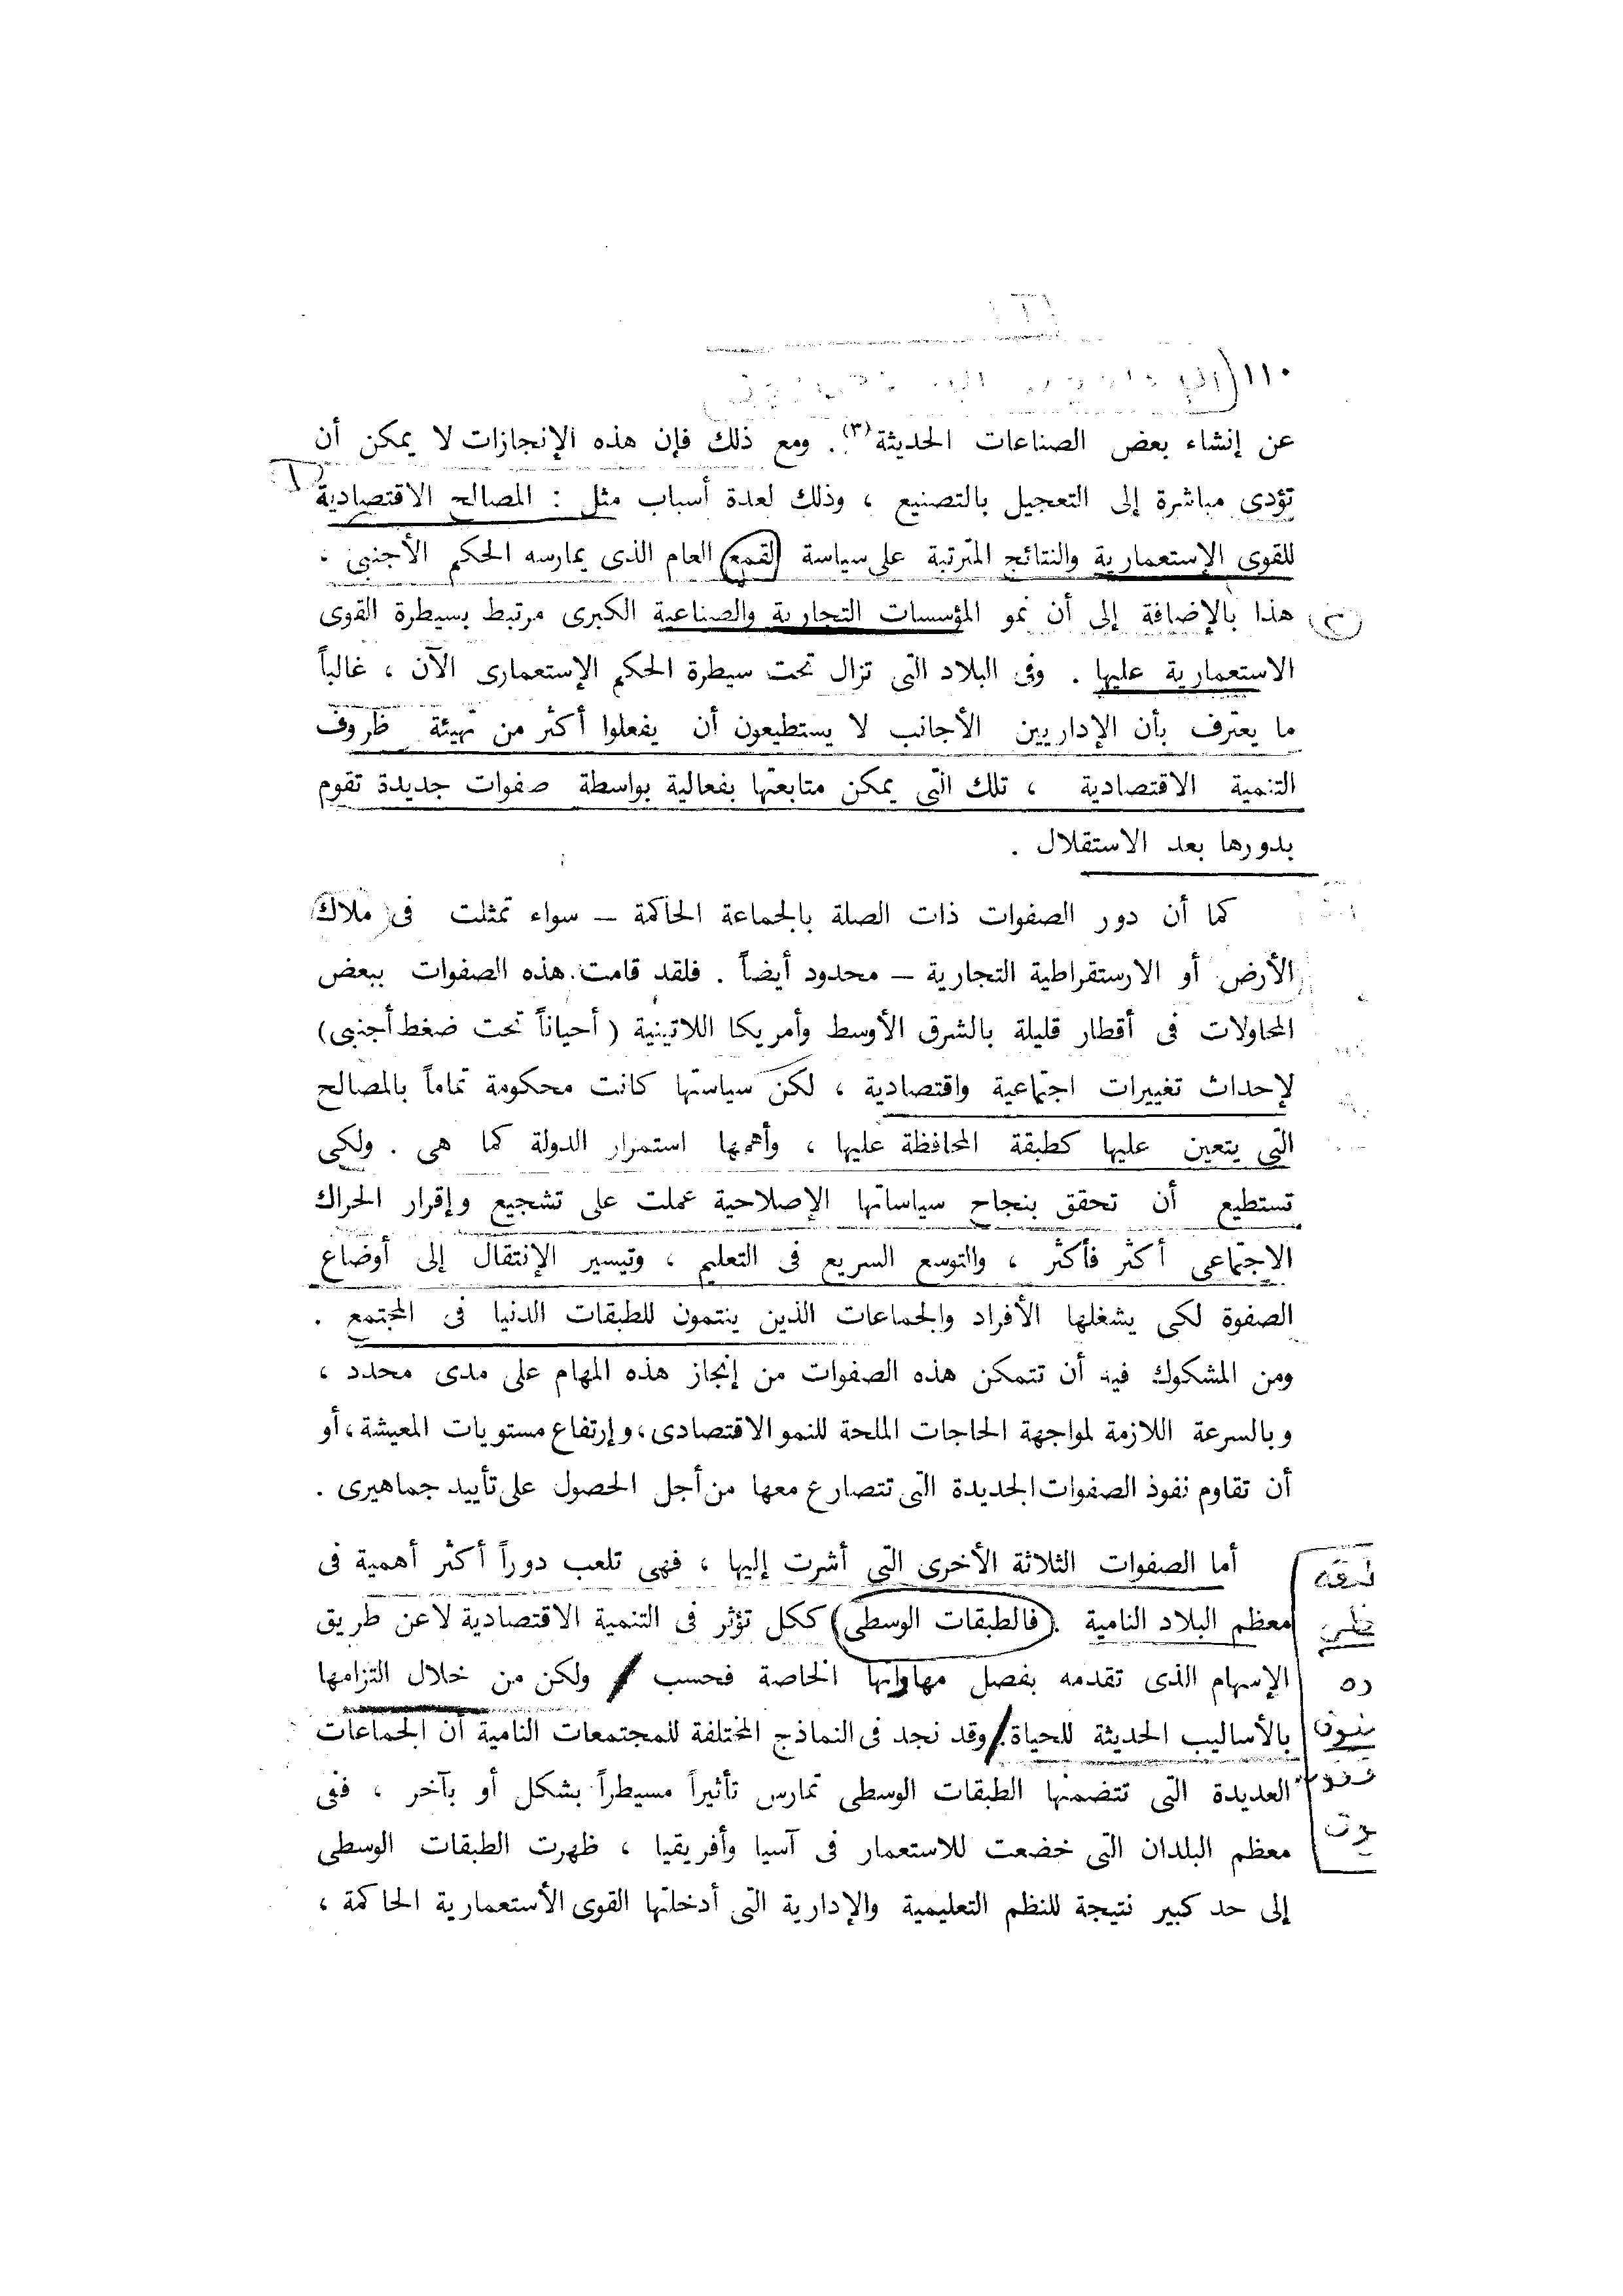 ١١٠
عن إنشاء بعض الصناعات الحديثة(٣). ومع ذلك فإن هذه الإنجازات لا يمكن أن
تؤدى مباشرة إلى التعجيل بالتصنيع ، وذلك لعدة أسباب مثل : المصالح الاقتصادية
للقوى الإستعمارية والنتائج المترتبة على سياسة القمع العام الذى يمارسه الحكم الأجنبى ،
هذا بالإضافة إلى أن نمو المؤسسات التجارية والصناعية الكبرى مرتبط بسيطرة القوى
الاستعمارية عليها . وفى البلاد التى تزال تحت سيطرة الحكم الإستعمارى الآن ، غالباً
ما يعترف بأن الإداريين الأجانب لا يستطيعون أن يفعلوا أكثر من تهيئة ظروف
التنمية الاقتصادية ، تلك التى يمكن متابعتها بفعالية بواسطة صفوات جديدة تقوم
بدورها بعد الاستقلال .
كما أن دور الصفوات ذات الصلة بالجماعة الحاكمة – سواء تمثلت فى ملاك
الأرض أو الارستقراطية التجارية – محدود أيضاً . فلقد قامت هذه الصفوات ببعض
المحاولات فى أقطار قليلة بالشرق الأوسط وأمريكا اللاتينية ( أحياناً تحت ضغط أجنبى)
لإحداث تغييرات اجتماعية واقتصادية ، لكن سياستها كانت محكومة تماماً بالمصالح
التى يتعين عليها كطبقة المحافظة عليها ، وأهمها استمرار الدولة كما هى . ولكى
تستطيع أن تحقق بنجاح سياساتها الإصلاحية عملت على تشجيع وإقرار الحراك
الاجتماعى أكثر فأكثر ، والتوسع السريع فى التعليم ، وتيسير الإنتقال إلى أوضاع
الصفوة لكى يشغلها الأفراد والجماعات الذين ينتمون للطبقات الدنيا فى المجتمع .
ومن المشكوك فيه أن تتمكن هذه الصفوات من إنجاز هذه المهام على مدى محدد ،
وبالسرعة اللازمة لمواجهة الحاجات الملحة للنمو الاقتصادى، وإرتفاع مستويات المعيشة، أو
أن تقاوم نفوذ الصفوات الجديدة التى تتصارع معها من أجل الحصول على تأييد جماهيرى .
أما الصفوات الثلاثة الأخرى التى أشرت إليها ، فهى تلعب دوراً أكثر أهمية فى
معظم البلاد النامية . (فالطبقات الوسطى) ككل تؤثر فى التنمية الاقتصادية لاعن طريق
الإسهام الذى تقدمه بفصل مهاراتها الخاصة فحسب ولكن من خلال التزامها
بالأساليب الحديثة للحياة. وقد نجد فى النماذج المختلفة للمجتمعات النامية أن الجماعات
العديدة التى تتضمنها الطبقات الوسطى تمارس تأثيراً مسيطراً بشكل أو بآخر ، ففى
معظم البلدان التى خضعت للاستعمار فى آسيا وأفريقيا ، ظهرت الطبقات الوسطى
إلى حد كبير نتيجة للنظم التعليمية والإدارية التى أدخلتها القوى الأستعمارية الحاكمة ،